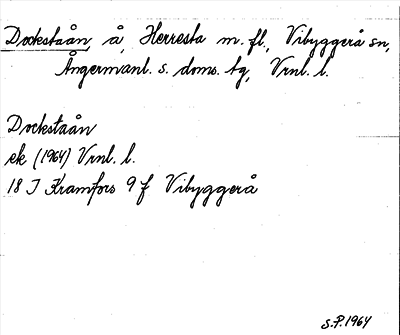 Dockstaån, å, Herresta m. fl., Vibyggerå sn,
Ångermanl. s. doms. tg, Vrnl. l.
Dockstaån
ek (1964) Vrnl. l.
18 I Kramfors 9 f Vibyggerå
S.P. 1964